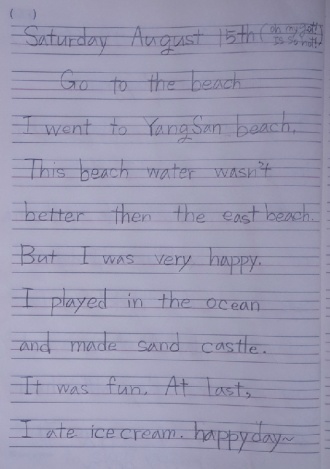 ( )
Saturday August 15th (oh my god! It's So hot!)
Go to the beach
I went to YangSan beach.
This beach water wasn't
better then the east beach.
But I was very happy.
I played in the ocean
and made sand castle.
It was fun. At last,
I ate ice cream. happy day~